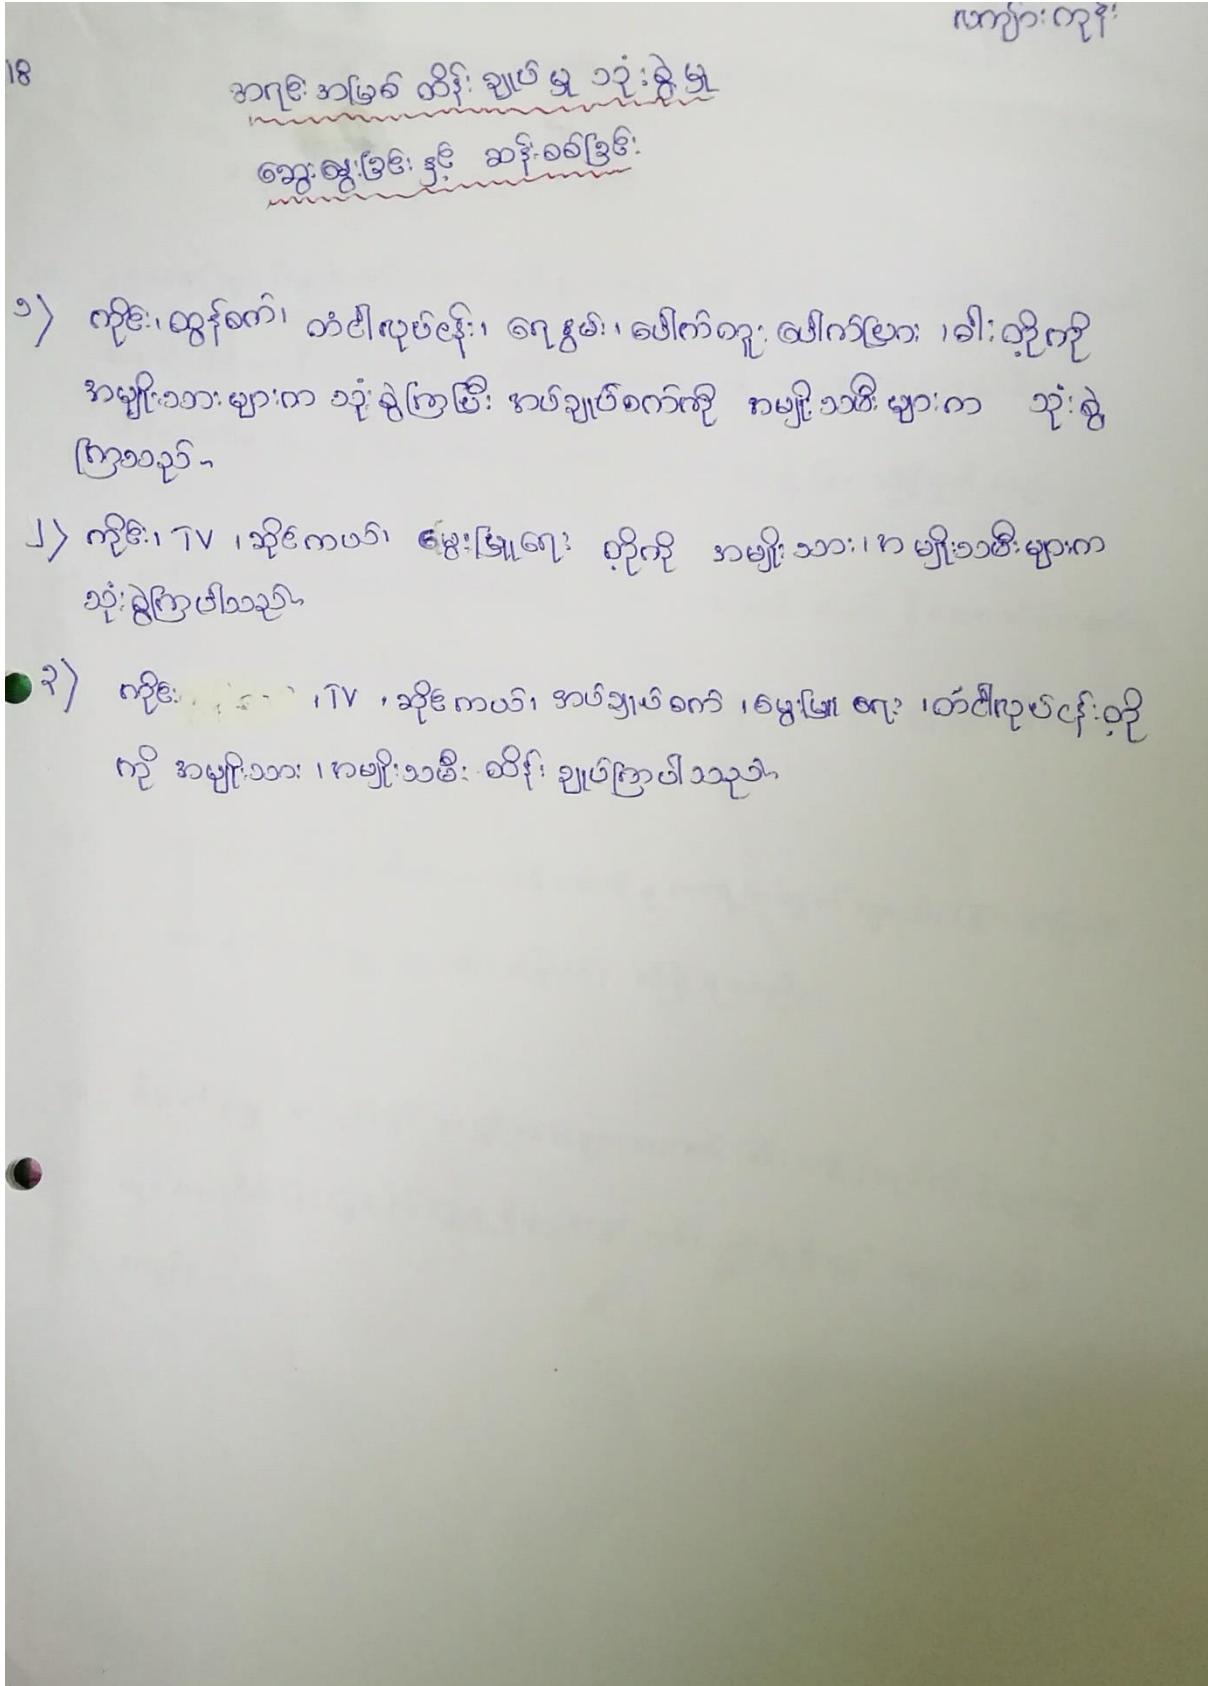 ယာကျ်ားကုန်း
18
အရင်းအမြစ် ထိန်းချုပ်မှု သုံးစွဲမှု
ဆွေးနွေးခြင်းနှင့် ဆန်းစစ်ခြင်း
၁) ကိုင်း၊ ထွန်စက်၊ တံငါလုပ်ငန်း၊ ရေနွမ်း၊ ပေါက်တူး ပေါက်ပြား ၊ ဓါး တို့ကို
အမျိုးသားများက သုံးစွဲကြပြီး အပ်ချုပ်စက်ကို အမျိုးသမီးများက သုံးစွဲ
ကြသည်။
၂) ကိုင်း၊ TV ၊ ဆိုင်ကယ်၊ မွေးမြူရေး တို့ကို အမျိုးသား၊ အမျိုးသမီးများက
သုံးစွဲကြပါသည်။
၃) ကိုင်း ၊ TV ၊ ဆိုင်ကယ်၊ အပ်ချုပ်စက် ၊ မွေးမြူရေး ၊ တံငါလုပ်ငန်းတို့
ကို အမျိုးသား ၊ အမျိုးသမီး ထိန်းချုပ်ကြပါသည်။